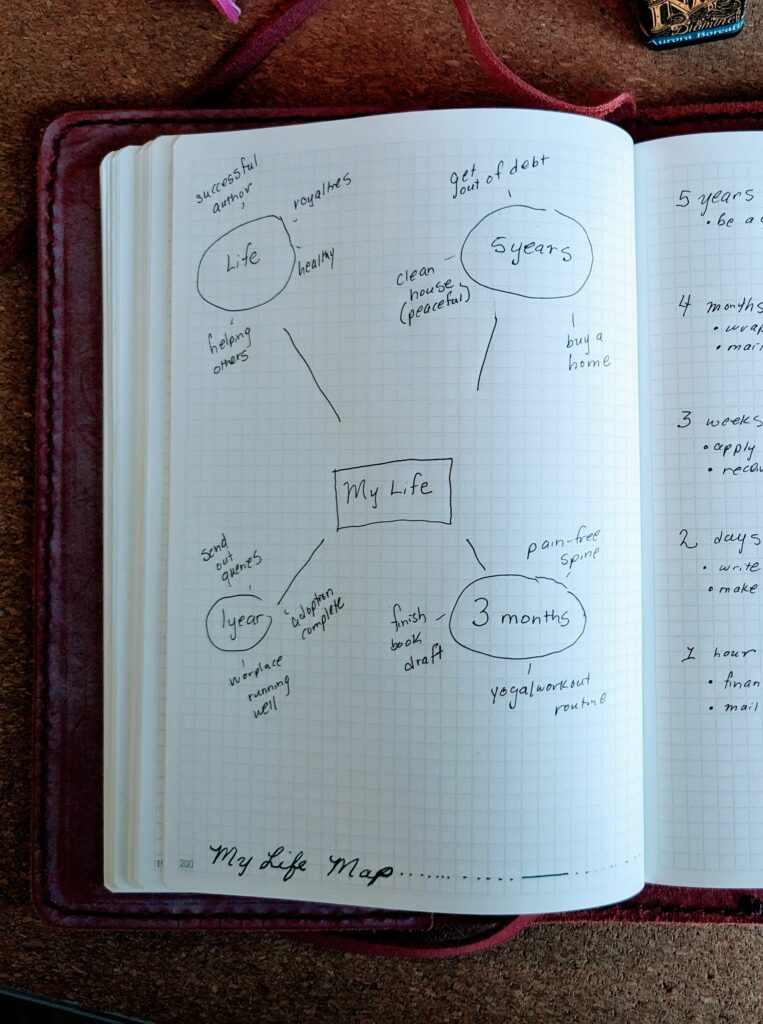 Diamine
Aurora Boreal
successful
author
royalties
Life
healthy
helping
others
get
out of debt
5 years
clean
house
(peaceful)
buy a
home
My Life
send
out
queries
1 year
adoption
complete
worplace
running
well
pain-free
spine
3 months
finish
book
draft
yoga/workout
routine
200
My Life Map
5 years
• be a
4 months
• wrap
• mail
3 weeks
• apply
2 days
• write
• make
1 hour
• finan
• mail